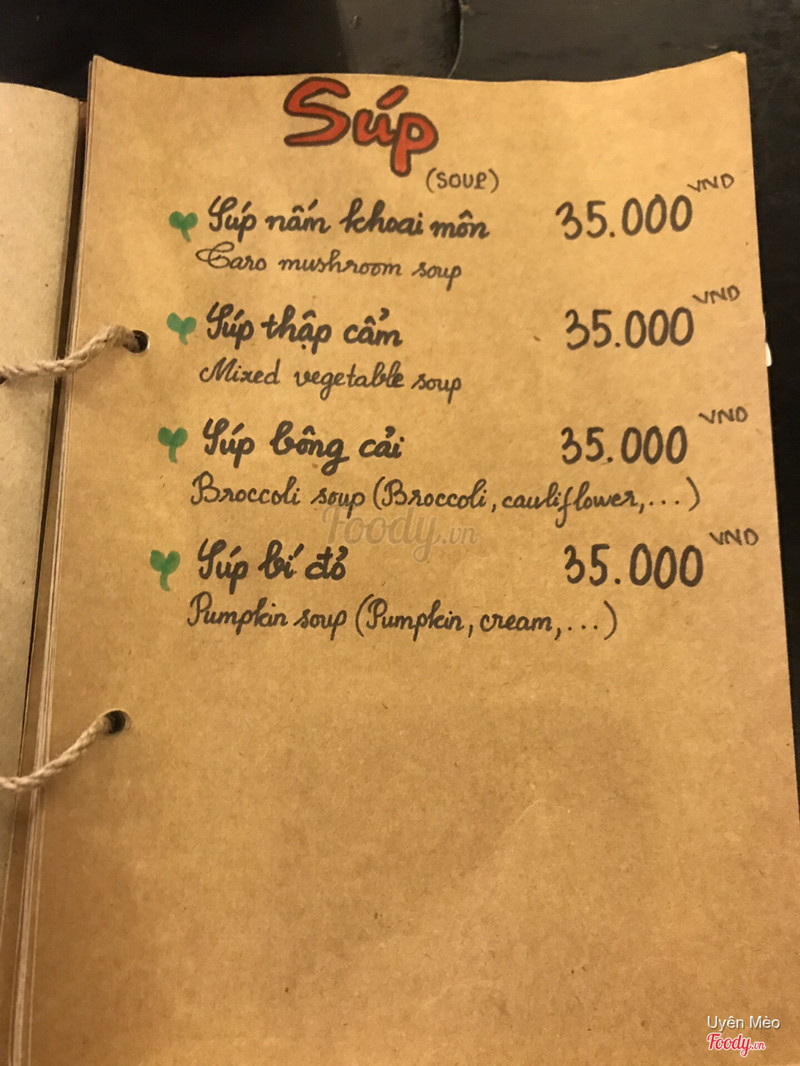 Súp
(SOUP)
Súp nấm khoai môn 35.000 VND
Taro mushroom soup
Súp thập cẩm 35.000 VND
Mixed vegetable soup
Súp bông cải 35.000 VND
Broccoli soup (Broccoli, cauliflower,...)
Foody.vn
Súp bí đỏ 35.000 VND
Pumpkin soup (Pumpkin, cream,...)
Uyên Mèo
Foody.vn